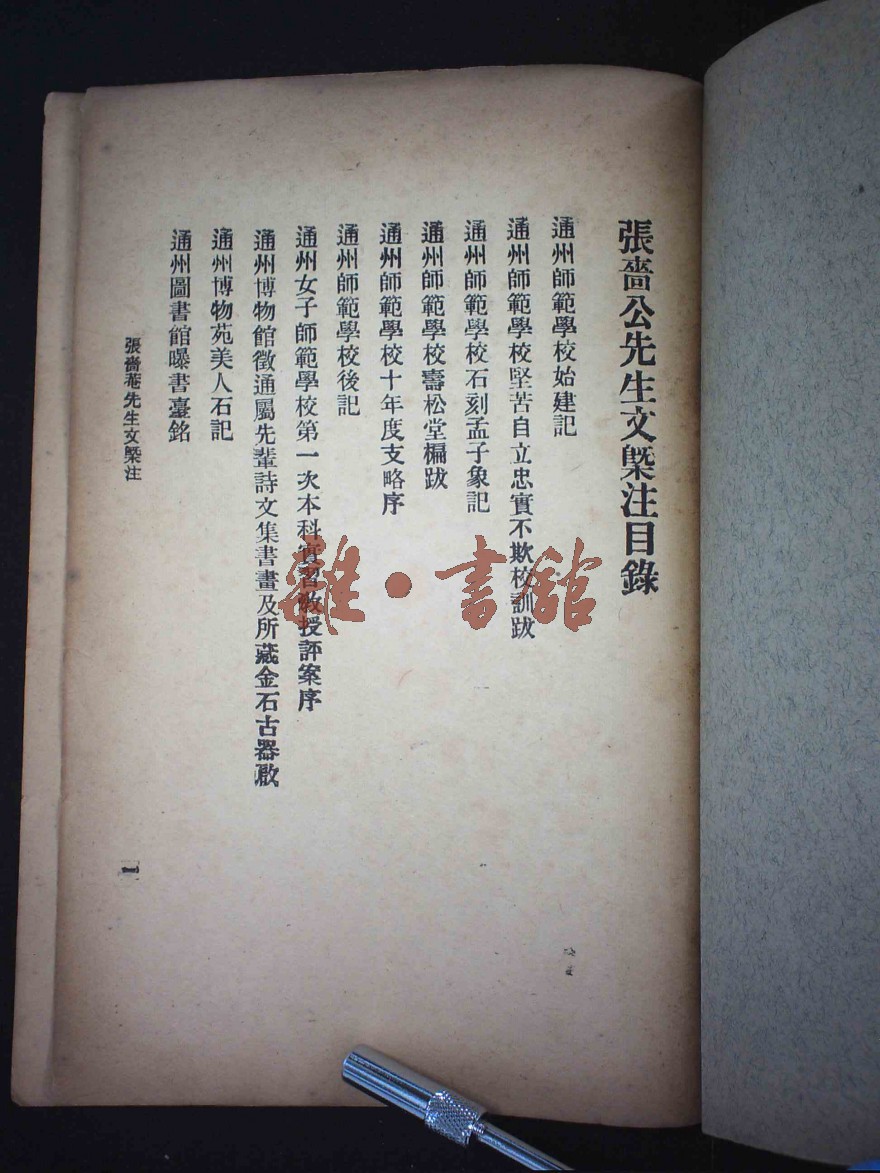 張嗇公先生文槩注目錄
通州師範學校始建記
通州師範學校堅苦自立忠實不欺校訓跋
通州師範學校石刻孟子象記
通州師範學校壽松堂楄跋
通州師範學校十年度支略序
通州師範學校後記
通州女子師範學校第一次本科實習教授評案序
通州博物館徵通屬先輩詩文集書畫及所藏金石古器啟
通州博物苑美人石記
通州圖書館曝書臺銘
張嗇菴先生文槩注
一
雜·書館